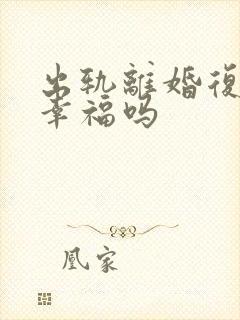 出轨離婚復
幸福吗
凰家